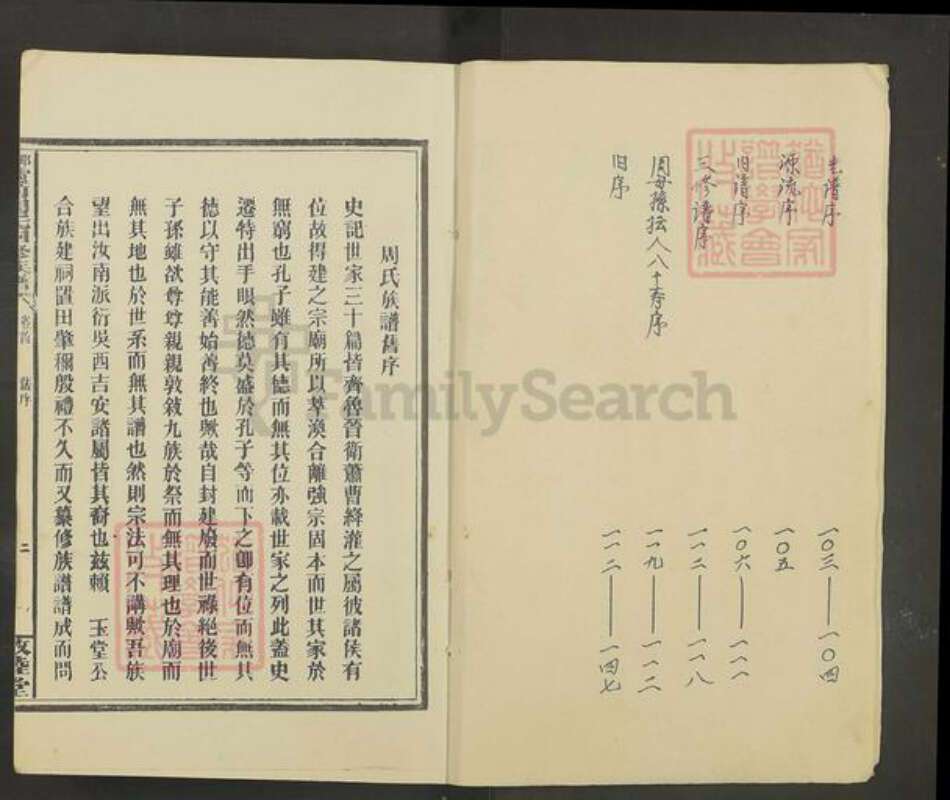 老譜序 一〇三——一〇四
源流序 一〇五
旧清序 一〇六——一一一
三修譜序 一一二——一一八
旧序 一一二——一四七
周氏族譜舊序
史記世家三十篇皆齊魯晉衛蕭曹絳灌之屬彼諸侯有
位故得建之宗廟所以萃渙合離強宗固本而世其家於
無窮也孔子雖有其德而無其位亦載世家之列此蓋史
遷特出手眼然德莫盛於孔子等而下之卽有位而無其
德以守其能善始善終也歟哉自封建廢而世祿絕後世
子孫雖欲尊尊親親敦敍九族於祭而無其理也於廟而
無其地也於世系而無其譜也然則宗法可不講歟吾族
望出汝南派衍吳西吉安諸屬皆其裔也茲賴 玉堂公
合族建祠置田肇稱殷禮不久而又纂修族譜譜成而問
卷首 舊序
二
敦睦堂
FamilySearch